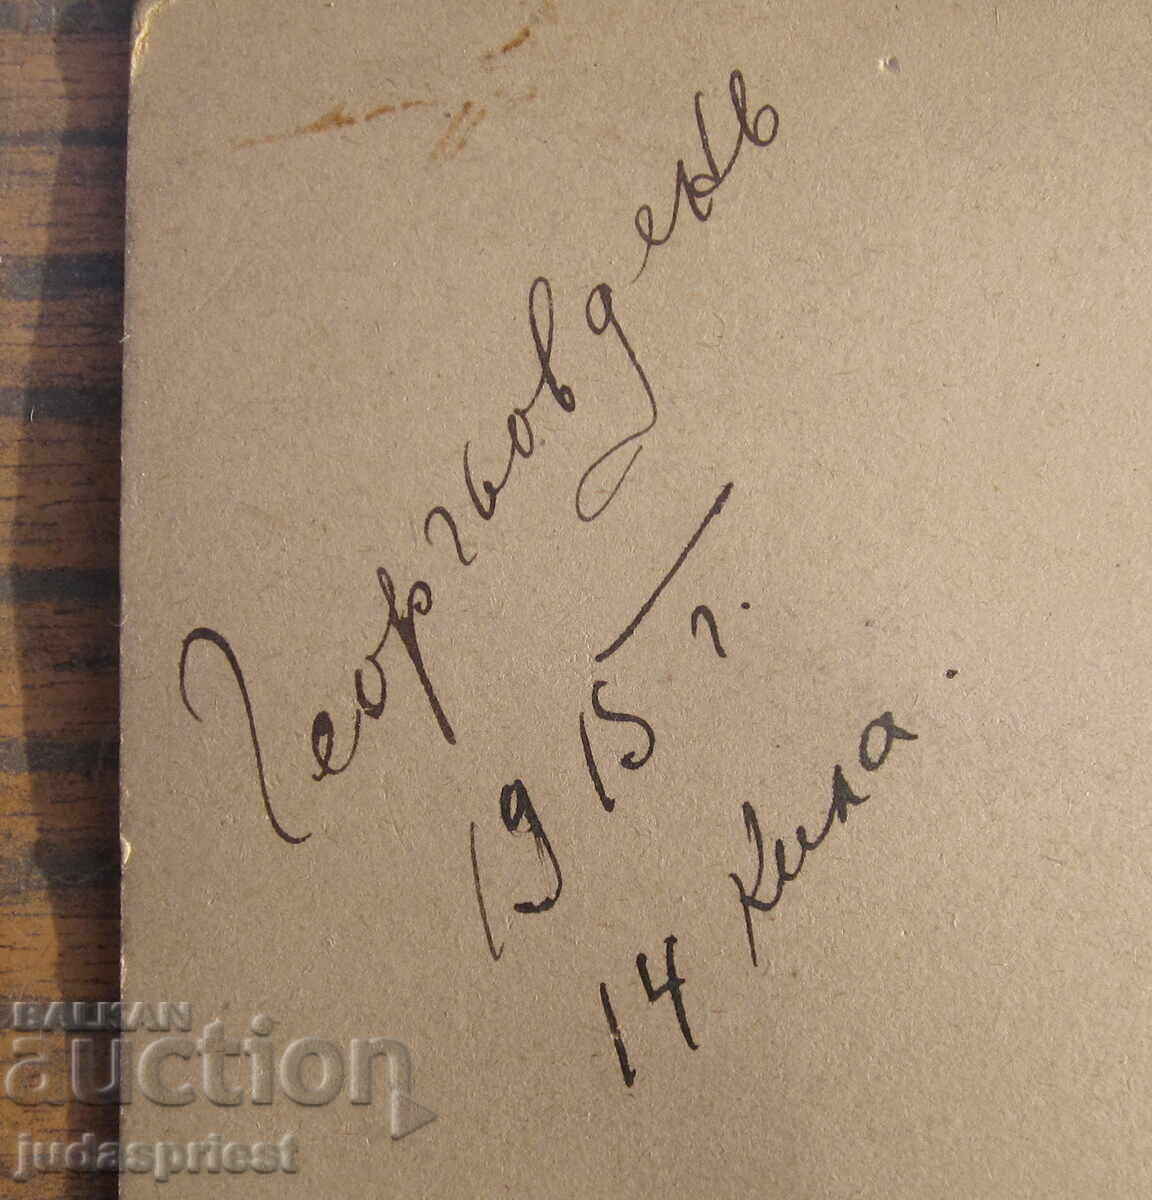 Гергьовденъ
1915 г.
14 кила.
BALKAN
auction
judaspriest